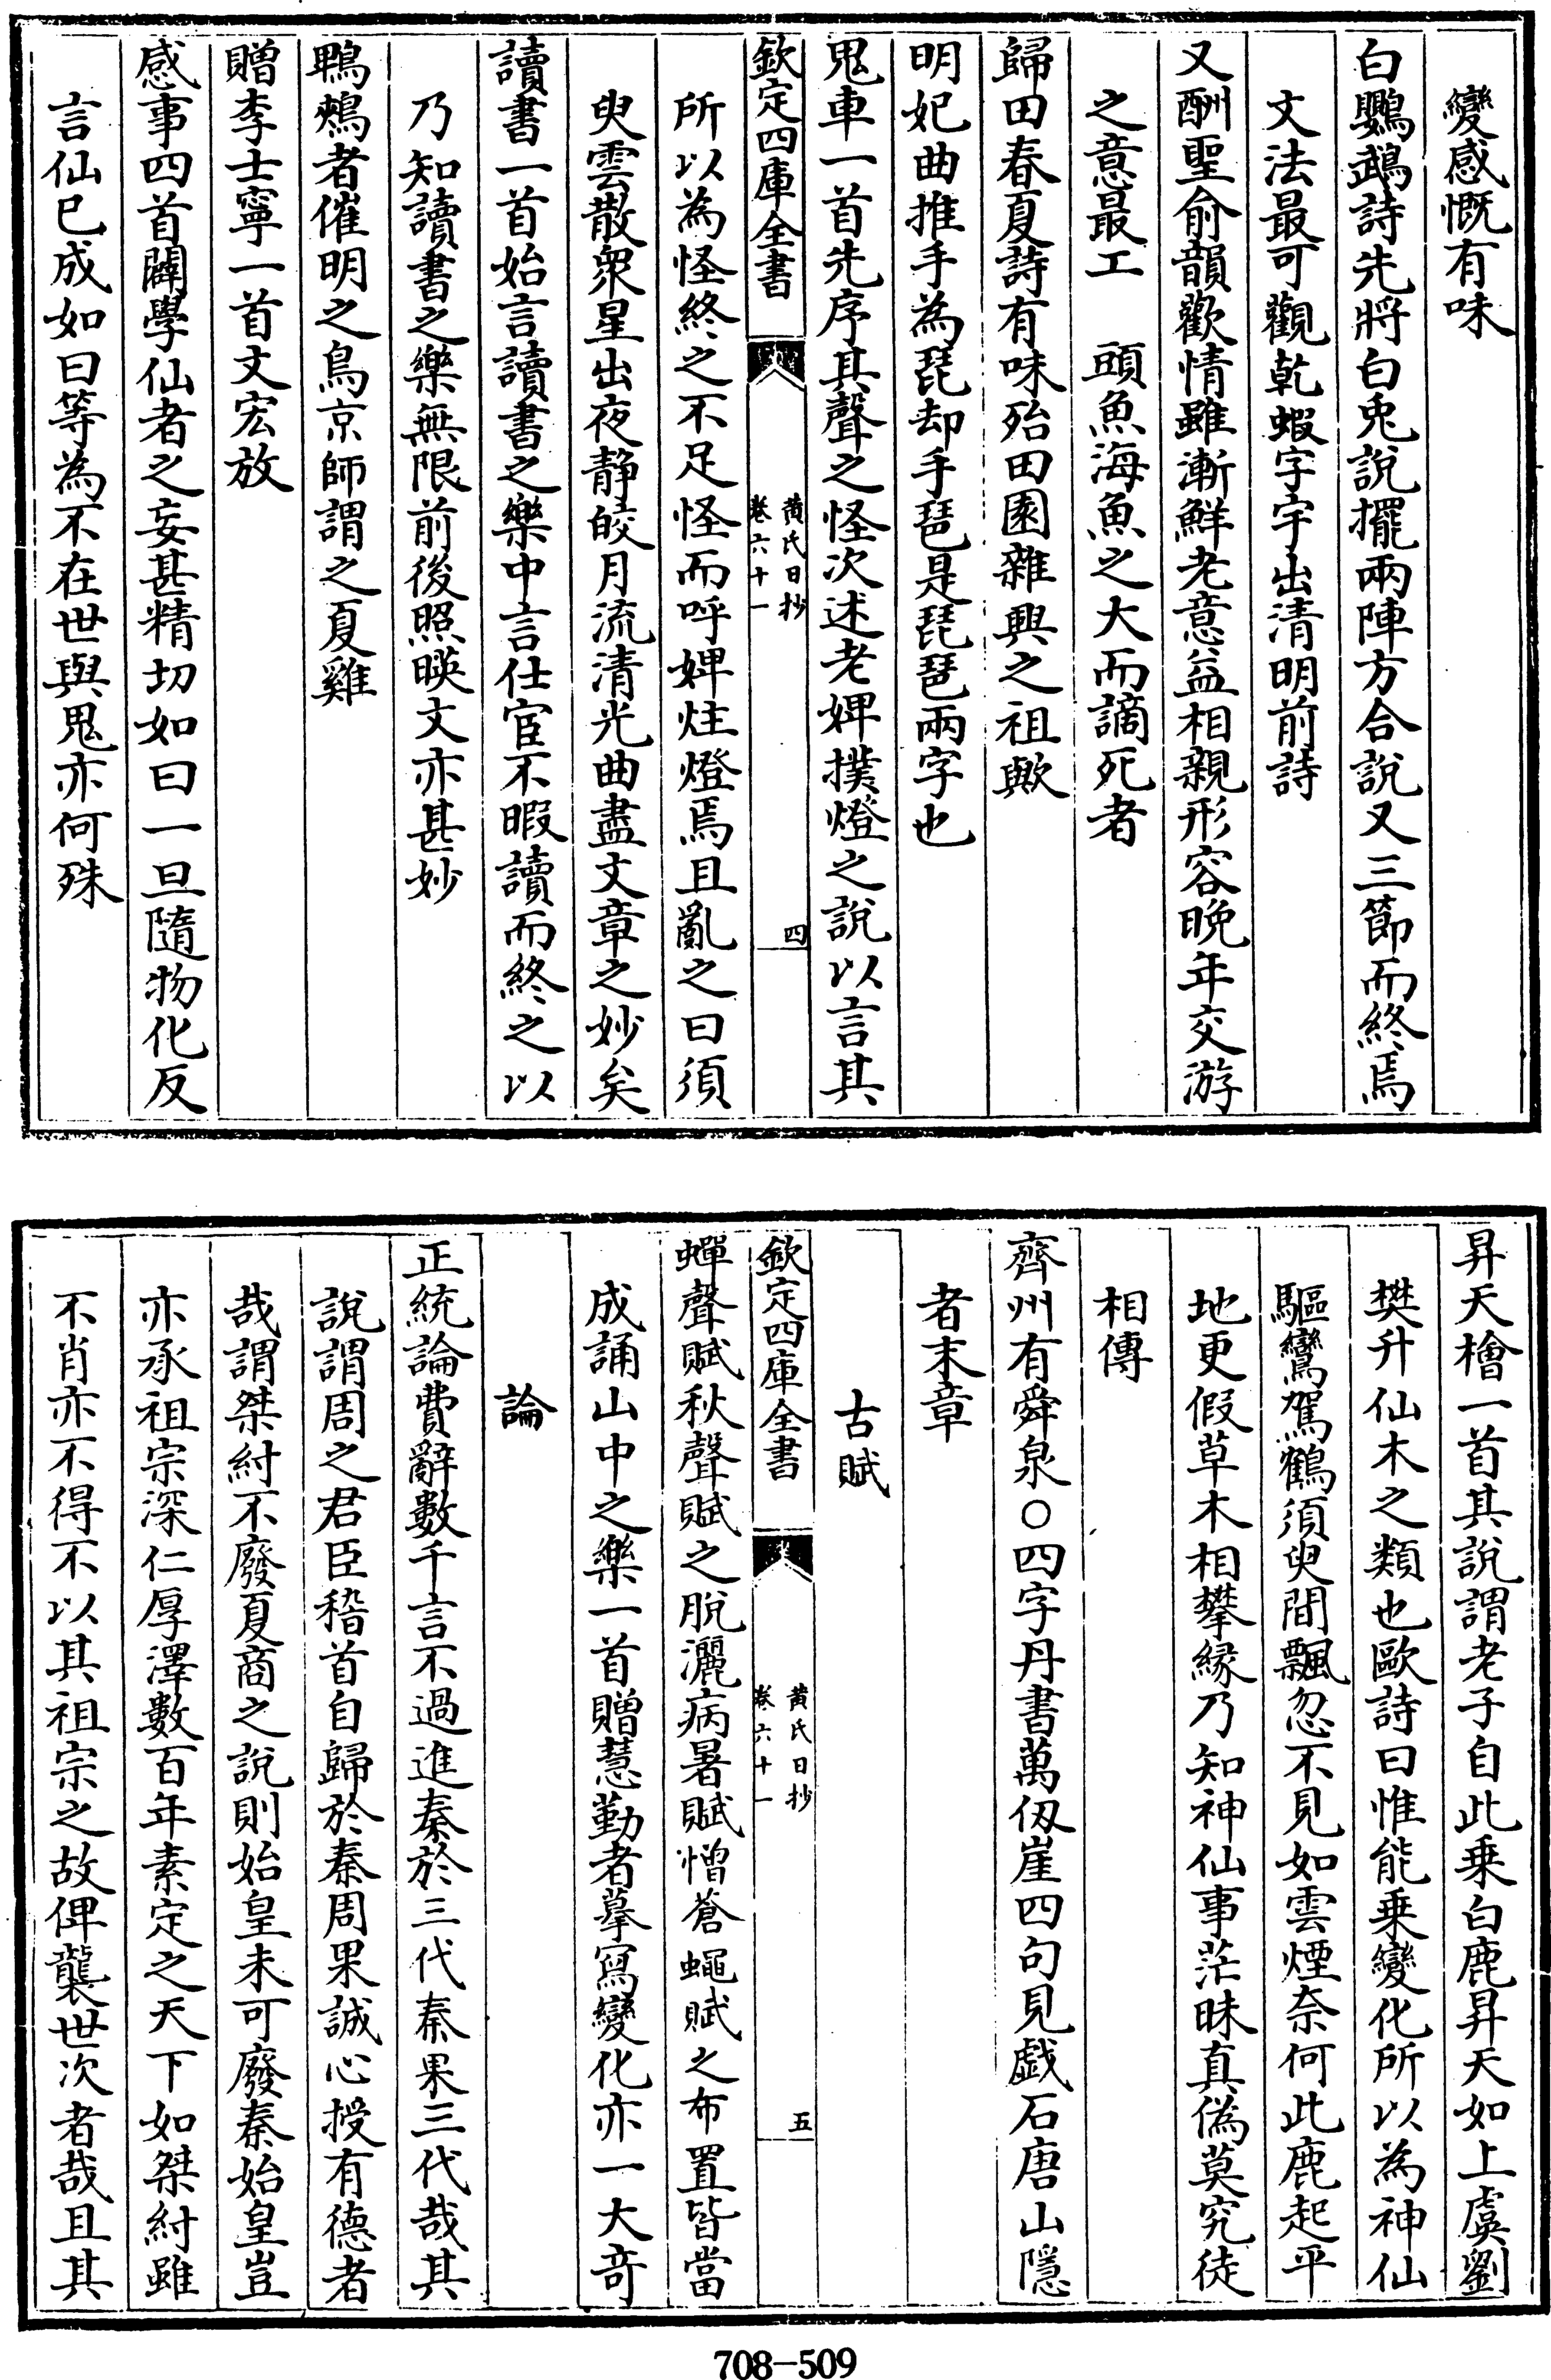 變感慨有味
白鸚鵡詩先將白兎說擺兩陣方合說又三節而終焉
文法最可觀乾蝦字宇出清明前詩
又酬聖俞韻歡情雖漸鮮老意益相親形容晚年交游
之意最工　頭魚海魚之大而謫死者
歸田春夏詩有味殆田園雜興之祖歟
明妃曲推手為琵却手琶是琵琶兩字也
鬼車一首先序其聲之怪次述老婢撲燈之說以言其
欽定四庫全書
黃氏日抄
卷六十一
四
所以為怪終之不足怪而呼婢炷燈焉且亂之曰須
臾雲散衆星出夜静皎月流清光曲盡文章之妙矣
讀書一首始言讀書之樂中言仕宦不暇讀而終之以
乃知讀書之樂無限前後照暎文亦甚妙
鵯鵊者催明之鳥京師謂之夏雞
贈李士寧一首文宏放
感事四首闢學仙者之妄甚精切如曰一旦隨物化反
言仙已成如曰等為不在世與鬼亦何殊
昇天檜一首其說謂老子自此乗白鹿昇天如上虞劉
樊升仙木之類也歐詩曰惟能乗變化所以為神仙
驅鸞駕鶴須臾間飄忽不見如雲煙奈何此鹿起平
地更假草木相攀縁乃知神仙事茫昧真偽莫究徒
相傳
齊州有舜泉○四字丹書萬仭崖四句見戱石唐山隱
者末章
古賦
欽定四庫全書
黃氏日抄
卷六十一
五
蟬聲賦秋聲賦之脫灑病暑賦憎蒼蠅賦之布置皆當
成誦山中之樂一首贈慧勤者摹寫變化亦一大竒
論
正統論費辭數千言不過進秦於三代秦果三代哉其
說謂周之君臣稽首自歸於秦周果誠心授有德者
哉謂桀紂不廢夏商之說則始皇未可廢秦始皇豈
亦承祖宗深仁厚澤數百年素定之天下如桀紂雖
不肖亦不得不以其祖宗之故俾襲世次者哉且其
708—509